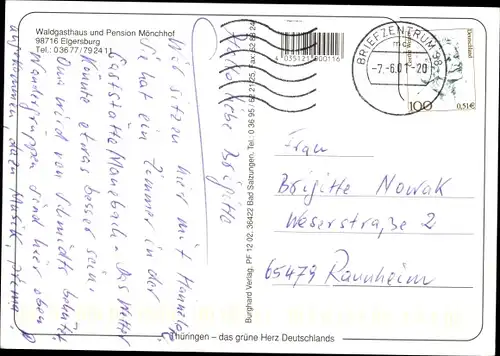 Waldgasthaus und Pension Mönchhof
98716 Elgersburg
Tel.: 03677/792411
Hallo liebe Brigitte
Wir sitzen hier mit Hannelore
Sie hat ein Zimmer in der
Gaststätte Manebach. Das Wetter
könnte etwas besser sein.
Oma wird von Schmidts
Wandergruppen sind hier eben
angekommen, dazu Musik, prima!
4 035121 000116
Burghard Verlag, PF 12 02, 36422 Bad Salzungen, Tel.: 0 36 95 / 62 21 25, Fax 62 82 24
BRIEFZENTRUM 98
mc
-7.-6.01-20
Deutschland
100
0,51€
Frau
Brigitte Nowak
Weserstraße 2
65479 Raunheim
Thüringen – das grüne Herz Deutschlands